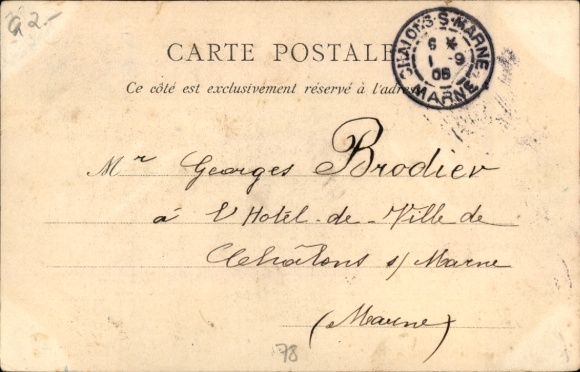 92.-
CARTE POSTALE
Ce côté est exclusivement réservé à l'adresse
CHALONS-S-MARNE
6 *
1 -9
05
MARNE
Mr Georges Brodier
à l'Hotel-de-Ville de
Châlons s/ Marne
(Marne)
78